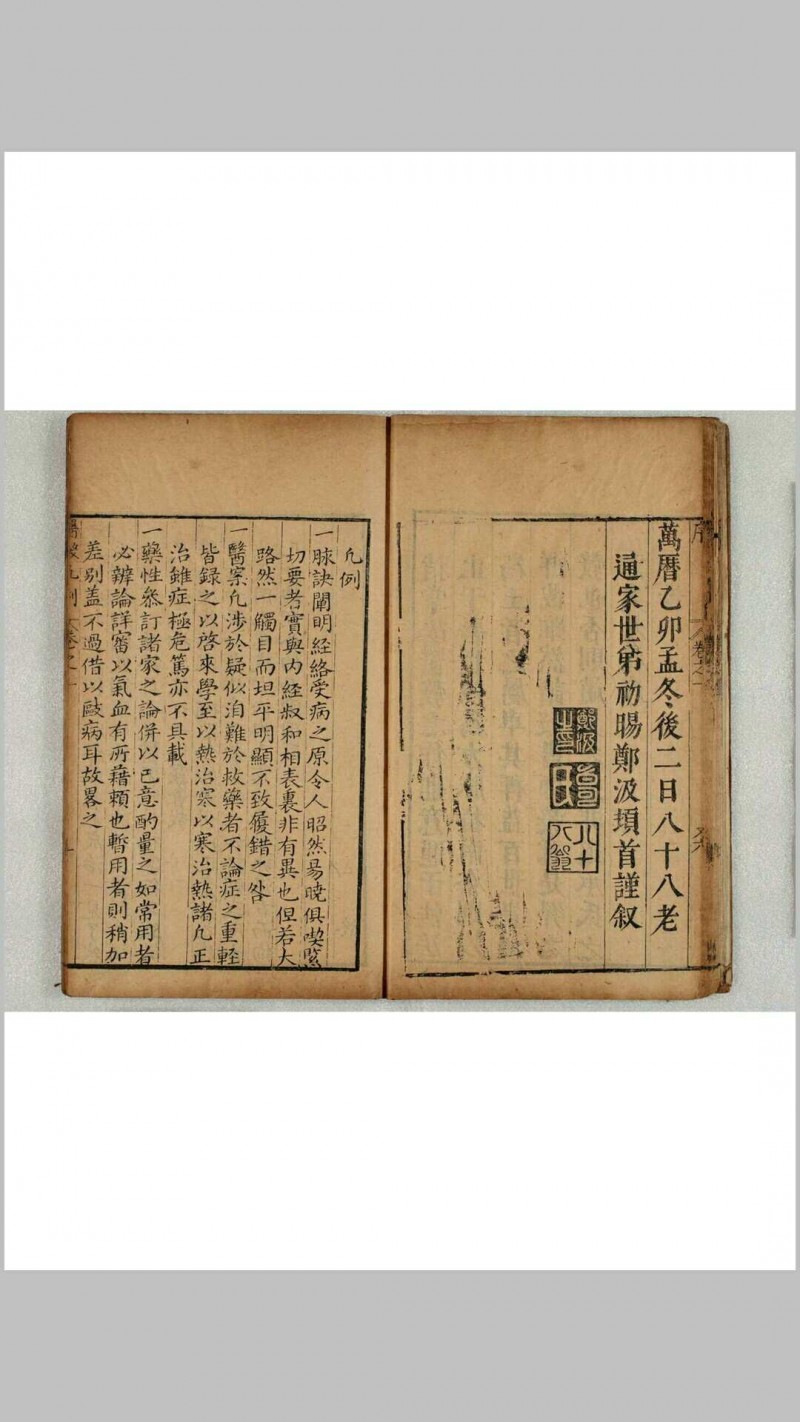 萬曆乙卯孟冬後二日八十八老
通家世弟初暘鄭汲頓首謹叙
鄭汲之印
八十八翁
凡例
一脉訣闡明経絡受病之原令人昭然易曉俱喫緊
切要考實與内経叔和相表裏非有異也但若大
路然一觸目而坦平明顯不致履錯之咎
一醫案凡涉於疑似洎難於救藥者不論症之重輕
皆録之以啓來學至以熱治寒以寒治熱諸凡正
治雖症極危篤亦不具載
一藥性叅訂諸家之論併以已意酌量之如常用者
必辨論詳審以氣血有所藉賴也暫用者則稍加
差别盖不過借以敺病耳故畧之